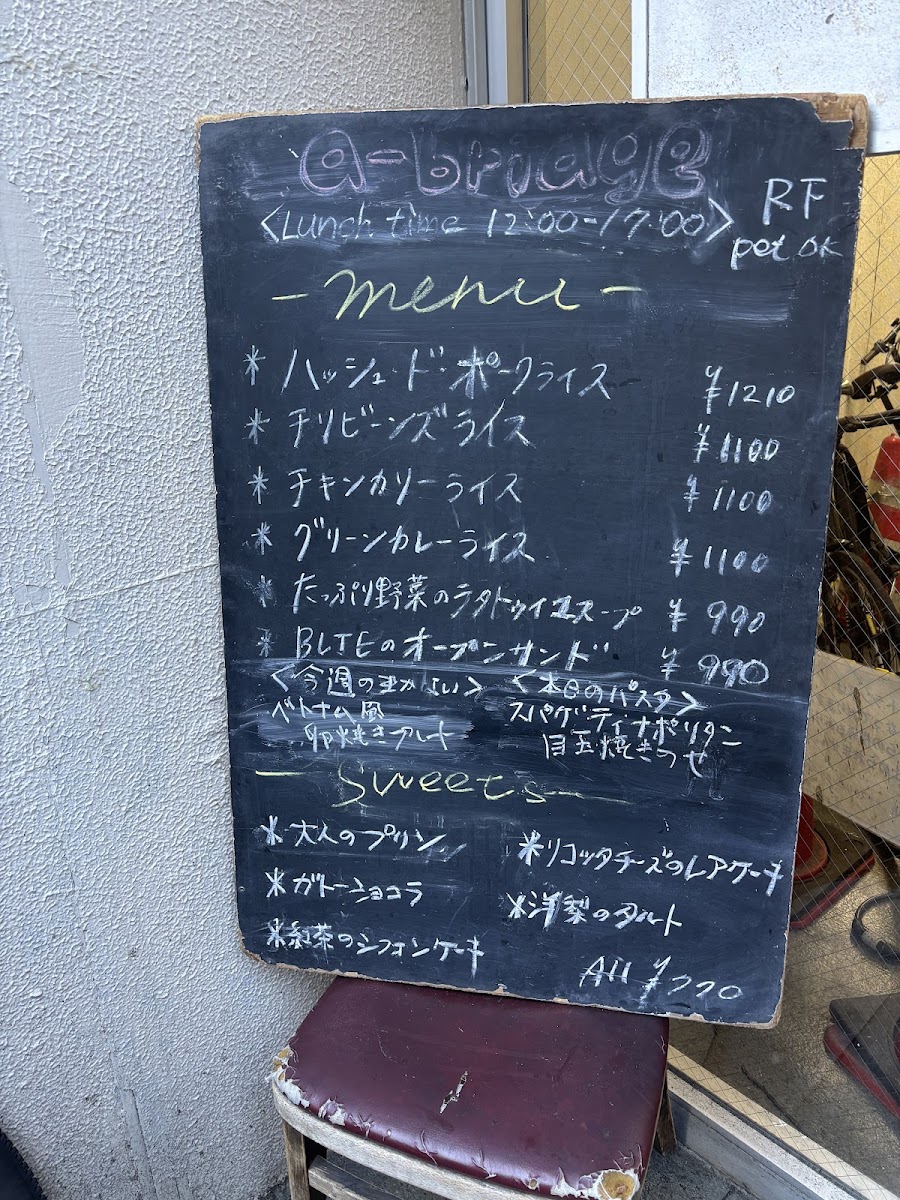 a-bridge
<Lunch time 12:00-17:00>
RF
pet OK
-menu-
* ハッシュ・ド・ポークライス ¥1210
* チリビーンズライス ¥1100
* チキンカリーライス ¥1100
* グリーンカレーライス ¥1100
* たっぷり野菜のラタトゥイユスープ ¥990
* BLTEのオープンサンド ¥990
<今週のまかない>
ベトナム風
卵焼きプレート
<本日のパスタ>
スパゲティナポリタン
目玉焼きのせ
- Sweets -
* 大人のプリン
* ガトーショコラ
* 紅茶のシフォンケーキ
* リコッタチーズのレアケーキ
* 洋梨のタルト
All ¥770